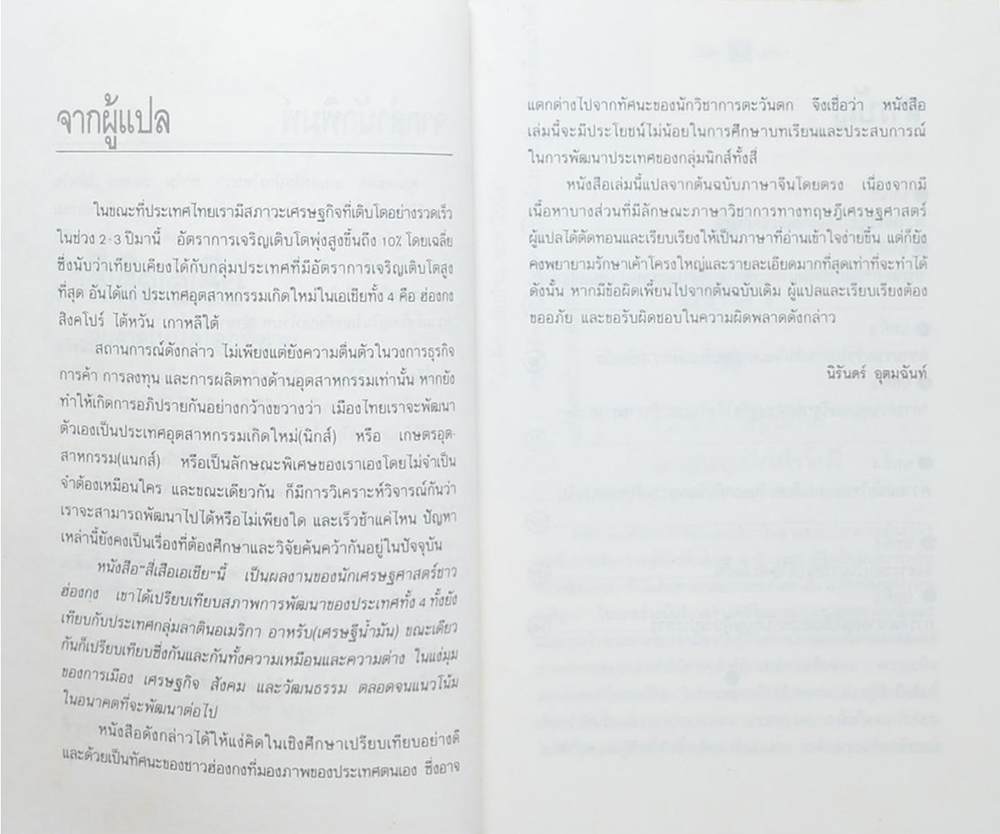 จากผู้แปล
ในขณะที่ประเทศไทยเรามีสภาวะเศรษฐกิจที่เติบโตอย่างรวดเร็ว
ในช่วง 2-3 ปีมานี้ อัตราการเจริญเติบโตพุ่งสูงขึ้นถึง 10% โดยเฉลี่ย
ซึ่งนับว่าเทียบเคียงได้กับกลุ่มประเทศที่มีอัตราการเจริญเติบโตสูง
ที่สุด อันได้แก่ ประเทศอุตสาหกรรมเกิดใหม่ในเอเชียทั้ง 4 คือ ฮ่องกง
สิงคโปร์ ไต้หวัน เกาหลีใต้
สถานการณ์ดังกล่าว ไม่เพียงแต่ยังความตื่นตัวในวงการธุรกิจ
การค้า การลงทุน และการผลิตทางด้านอุตสาหกรรมเท่านั้น หากยัง
ทำให้เกิดการอภิปรายกันอย่างกว้างขวางว่า เมืองไทยเราจะพัฒนา
ตัวเองเป็นประเทศอุตสาหกรรมเกิดใหม่(นิกส์) หรือ เกษตรอุต-
สาหกรรม(แนกส์) หรือเป็นลักษณะพิเศษของเราเองโดยไม่จำเป็น
จำต้องเหมือนใคร และขณะเดียวกัน ก็มีการวิเคราะห์วิจารณ์กันว่า
เราจะสามารถพัฒนาไปได้หรือไม่เพียงใด และเร็วช้าแค่ไหน ปัญหา
เหล่านี้ยังคงเป็นเรื่องที่ต้องศึกษาและวิจัยค้นคว้ากันอยู่ในปัจจุบัน
หนังสือ"สี่เสือเอเชีย"นี้ เป็นผลงานของนักเศรษฐศาสตร์ชาว
ฮ่องกง เขาได้เปรียบเทียบสภาพการพัฒนาของประเทศทั้ง 4 ทั้งยัง
เทียบกับประเทศกลุ่มลาตินอเมริกา อาหรับ(เศรษฐีน้ำมัน) ขณะเดียว
กันก็เปรียบเทียบซึ่งกันและกันทั้งความเหมือนและความต่าง ในแง่มุม
ของการเมือง เศรษฐกิจ สังคม และวัฒนธรรม ตลอดจนแนวโน้ม
ในอนาคตที่จะพัฒนาต่อไป
หนังสือดังกล่าวได้ให้แง่คิดในเชิงศึกษาเปรียบเทียบอย่างดี
และด้วยเป็นทัศนะของชาวฮ่องกงที่มองภาพของประเทศตนเอง ซึ่งอาจ
แตกต่างไปจากทัศนะของนักวิชาการตะวันตก จึงเชื่อว่า หนังสือ
เล่มนี้จะมีประโยชน์ไม่น้อยในการศึกษาบทเรียนและประสบการณ์
ในการพัฒนาประเทศของกลุ่มนิกส์ทั้งสี่
หนังสือเล่มนี้แปลจากต้นฉบับภาษาจีนโดยตรง เนื่องจากมี
เนื้อหาบางส่วนที่มีลักษณะภาษาวิชาการทางทฤษฎีเศรษฐศาสตร์
ผู้แปลได้ตัดทอนและเรียบเรียงให้เป็นภาษาที่อ่านเข้าใจง่ายขึ้น แต่ก็ยัง
คงพยายามรักษาเค้าโครงใหญ่และรายละเอียดมากที่สุดเท่าที่จะทำได้
ดังนั้น หากมีข้อผิดเพี้ยนไปจากต้นฉบับเดิม ผู้แปลและเรียบเรียงต้อง
ขออภัย และขอรับผิดชอบในความผิดพลาดดังกล่าว
นิรันดร์ อุตมฉันท์